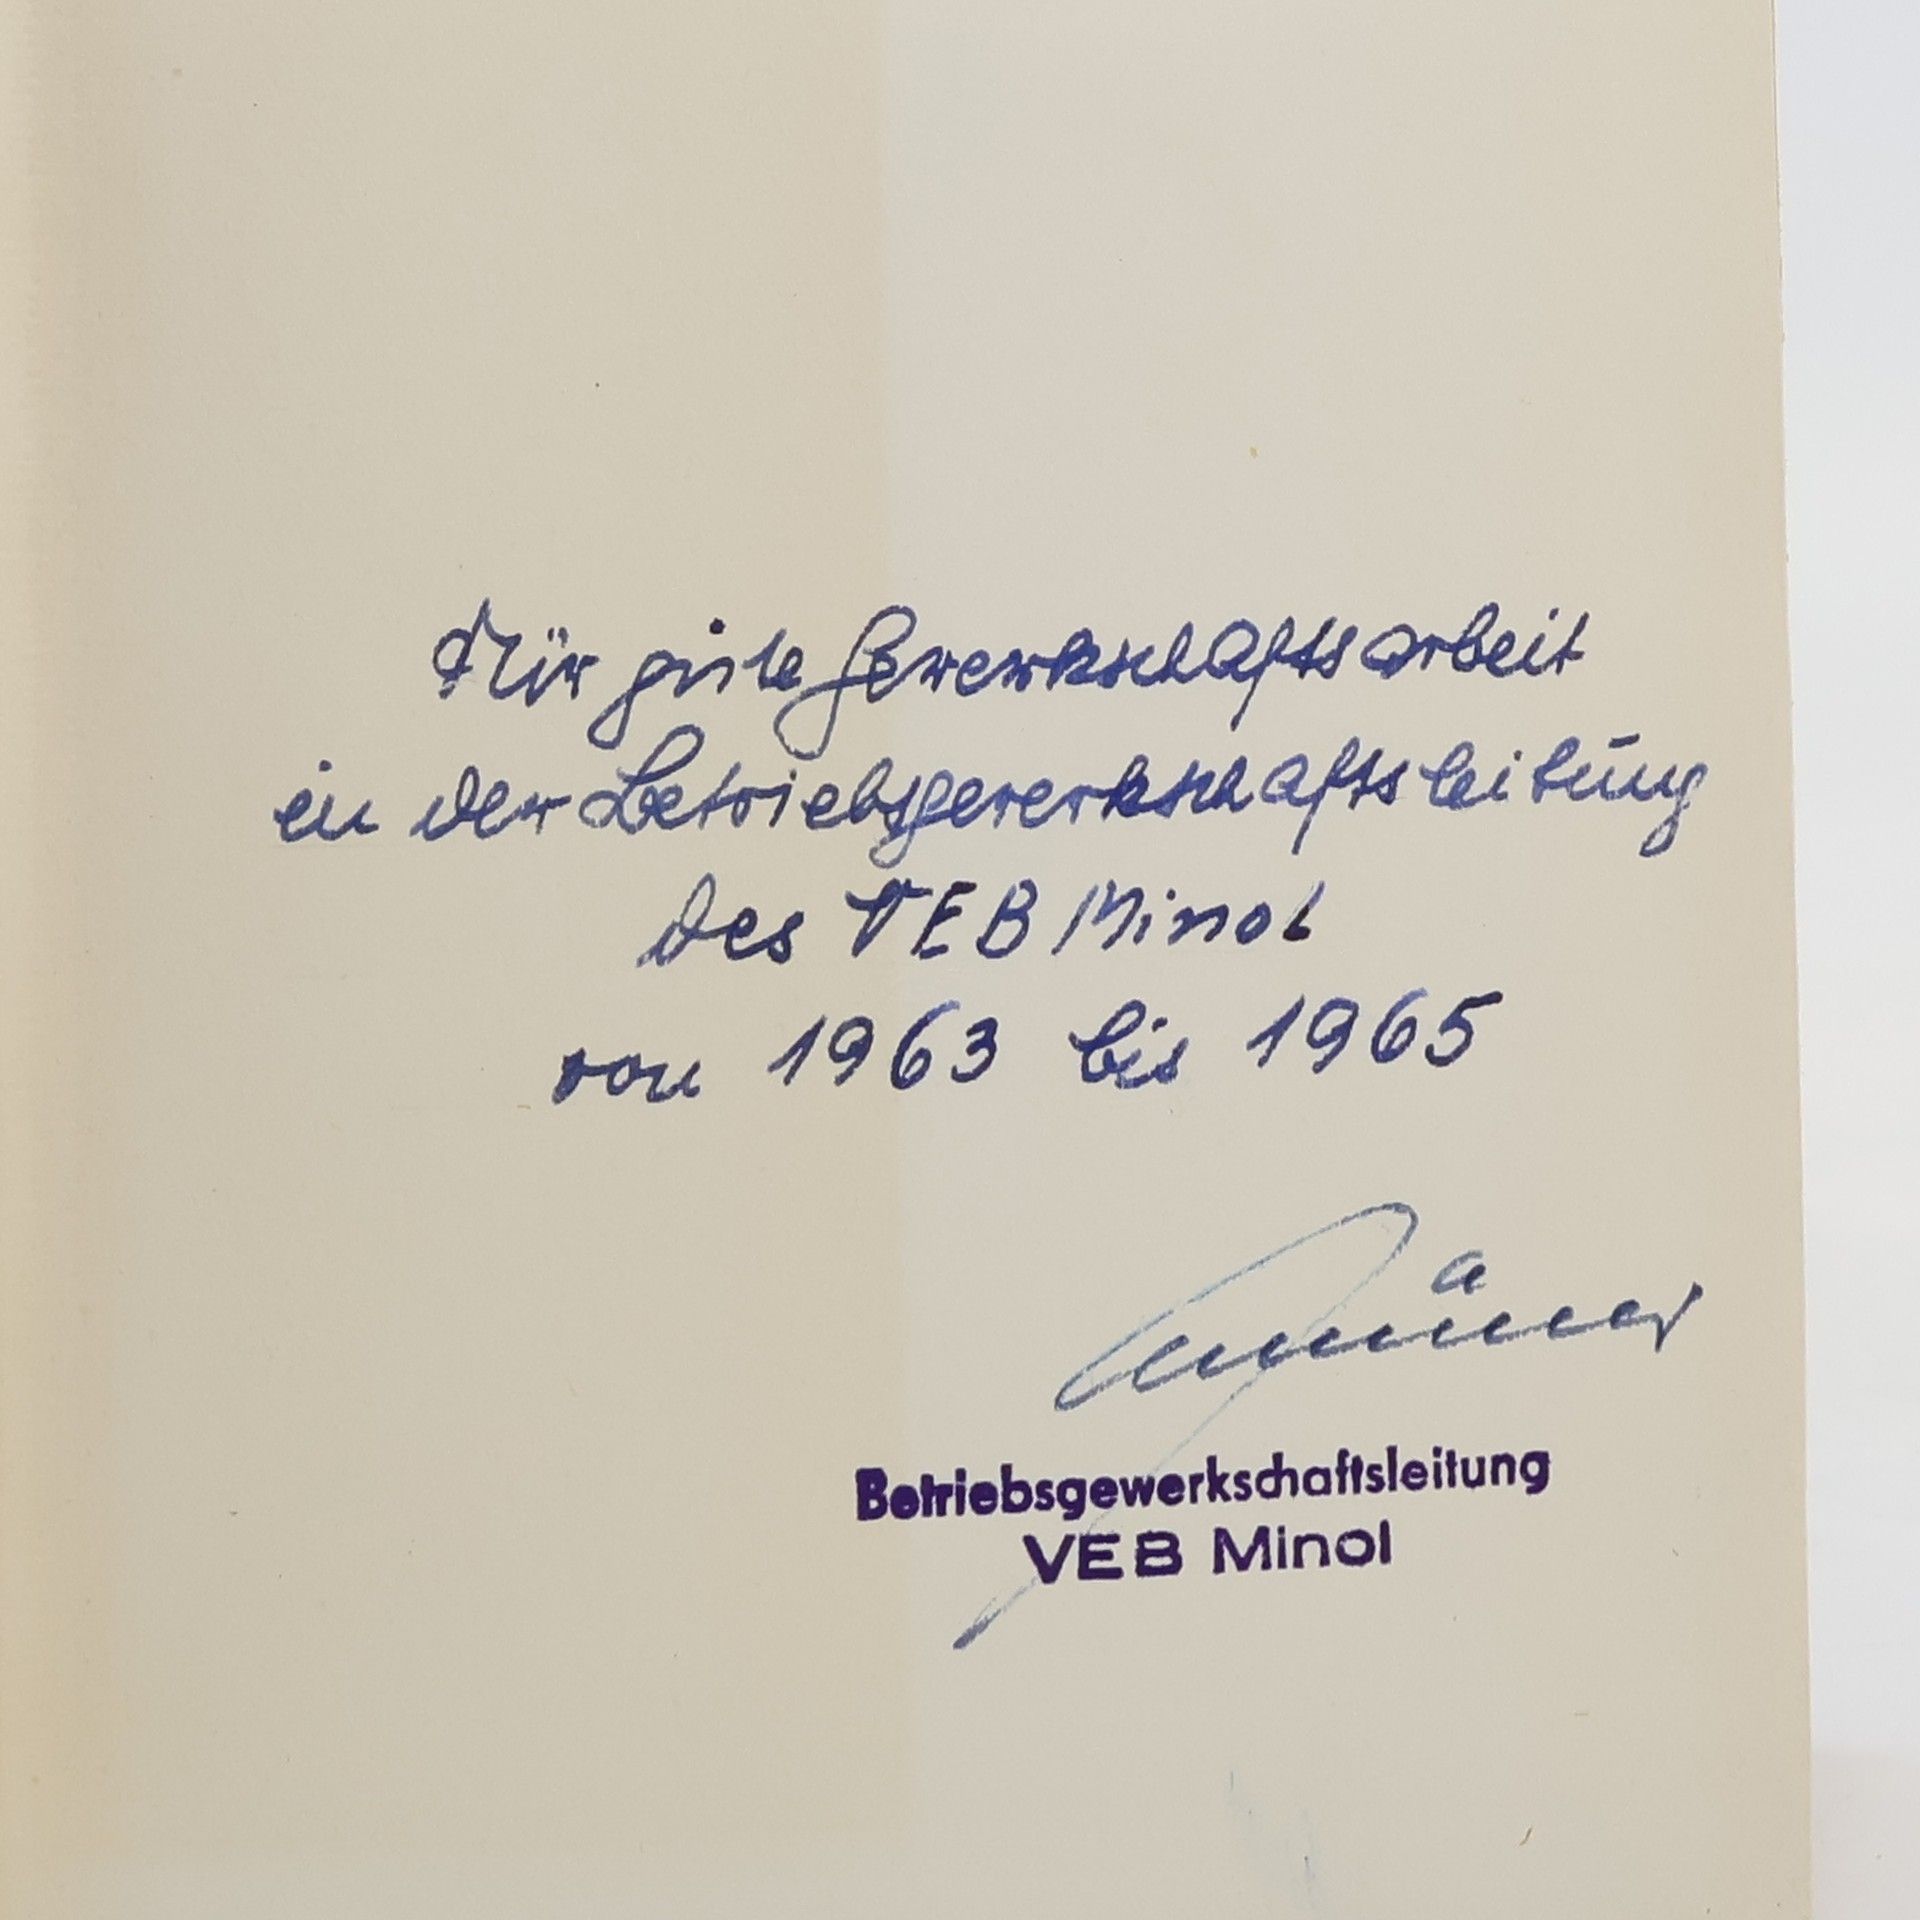 Für gute Gewerkschaftsarbeit
in der Betriebsgewerkschaftsleitung
des VEB Minol
von 1963 bis 1965
Betriebsgewerkschaftsleitung
VEB Minol